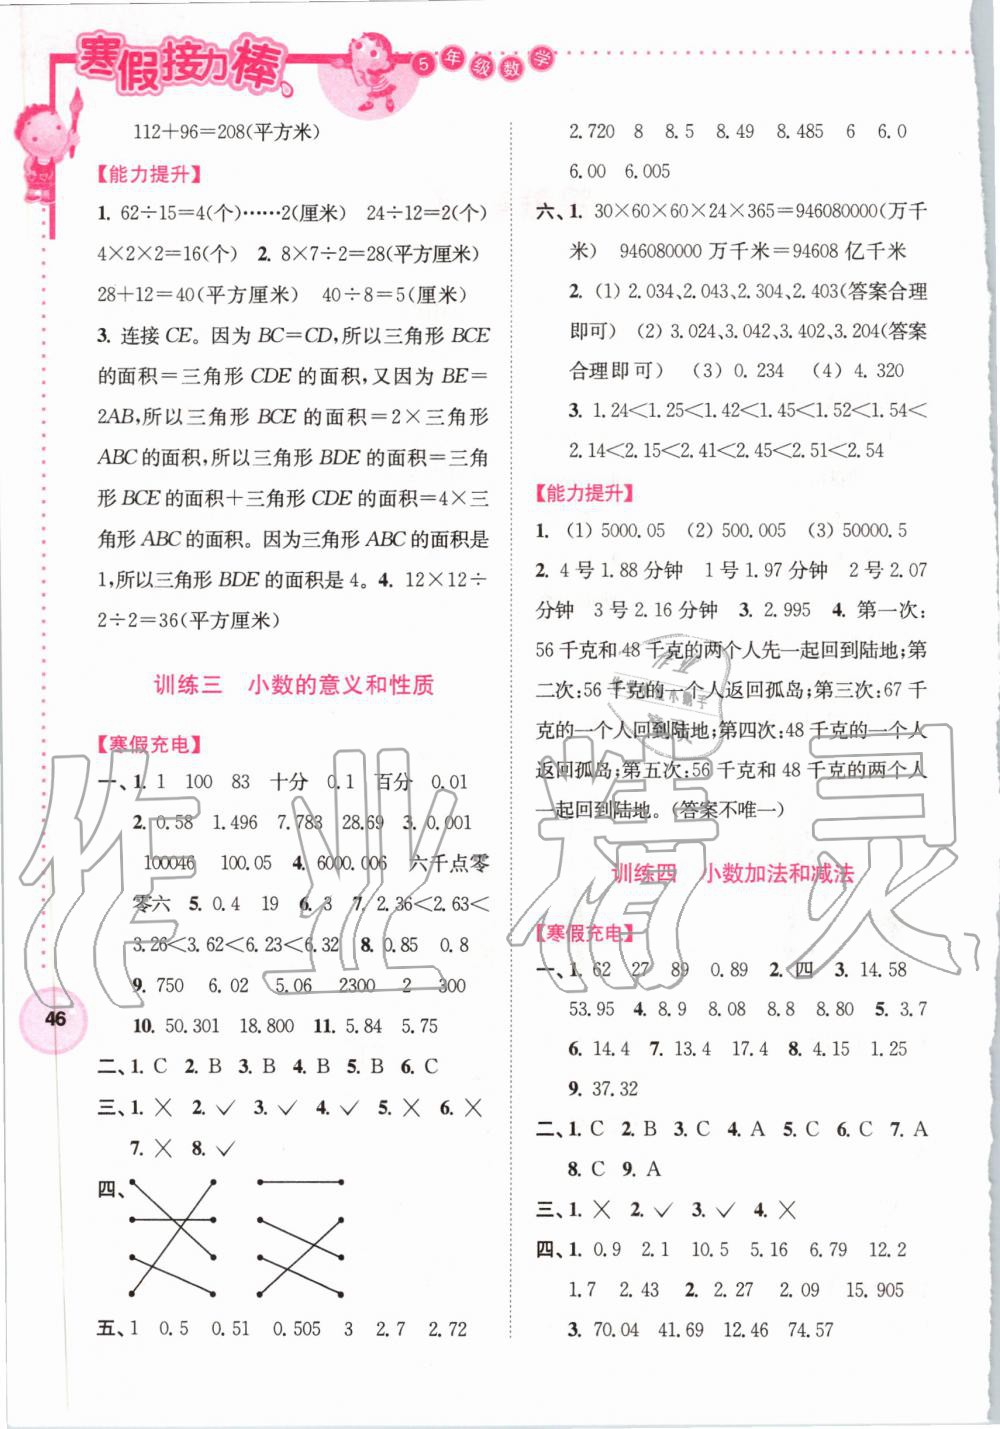 寒假接力棒
5年级数学
112+96=208(平方米)
【能力提升】
1. 62÷15=4(个)……2(厘米) 24÷12=2(个)
4×2×2=16(个) 2. 8×7÷2=28(平方厘米)
28+12=40(平方厘米) 40÷8=5(厘米)
3. 连接 CE。因为 BC=CD,所以三角形 BCE
的面积=三角形 CDE 的面积,又因为 BE=
2AB,所以三角形 BCE 的面积=2×三角形
ABC 的面积,所以三角形 BDE 的面积=三角形
BCE 的面积+三角形 CDE 的面积=4×三
角形 ABC 的面积。因为三角形 ABC 的面积是
1,所以三角形 BDE 的面积是 4。 4. 12×12÷
2÷2=36(平方厘米)
训练三 小数的意义和性质
【寒假充电】
一、1. 1 100 83 十分 0.1 百分 0.01
2. 0.58 1.496 7.783 28.69 3. 0.001
100046 100.05 4. 6000.006 六千点零
零六 5. 0.4 19 6. 3 7. 2.36<2.63<
3.26<3.62<6.23<6.32 8. 0.85 0.8
9. 750 6.02 5.06 2300 2 300
10. 50.301 18.800 11. 5.84 5.75
二、1. C 2. B 3. B 4. B 5. B 6. C
三、1. × 2. ✓ 3. ✓ 4. ✓ 5. × 6. ×
7. × 8. ✓
四、
五、1 0.5 0.51 0.505 3 2.7 2.72
46
2.720 8 8.5 8.49 8.485 6 6.0
6.00 6.005
六、1. 30×60×60×24×365=946080000(万千
米) 946080000万千米=94608亿千米
2. (1) 2.034、2.043、2.304、2.403(答案合理
即可) (2) 3.024、3.042、3.402、3.204(答案
合理即可) (3) 0.234 (4) 4.320
3. 1.24<1.25<1.42<1.45<1.52<1.54<
2.14<2.15<2.41<2.45<2.51<2.54
【能力提升】
1. (1) 5000.05 (2) 500.005 (3) 50000.5
2. 4号1.88分钟 1号1.97分钟 2号2.07
分钟 3号2.16分钟 3. 2.995 4. 第一次:
56千克和48千克的两个人先一起回到陆地;第
二次:56千克的一个人返回孤岛;第三次:67千
克的一个人回到陆地;第四次:48千克的一个人
返回孤岛;第五次:56千克和48千克的两个人
一起回到陆地。(答案不唯一)
训练四 小数加法和减法
【寒假充电】
一、1. 62 27 89 0.89 2. 四 3. 14.58
53.95 4. 8.9 8.08 8.8 8.80 5. 3.7
6. 14.4 7. 13.4 17.4 8. 4.15 1.25
9. 37.32
二、1. C 2. B 3. C 4. A 5. C 6. C 7. A
8. C 9. A
三、1. × 2. ✓ 3. ✓ 4. ×
四、1. 0.9 2.1 10.5 5.16 6.79 12.2
1.7 2.43 2. 2.27 2.09 15.905
3. 70.04 41.69 12.46 74.57
作业精灵